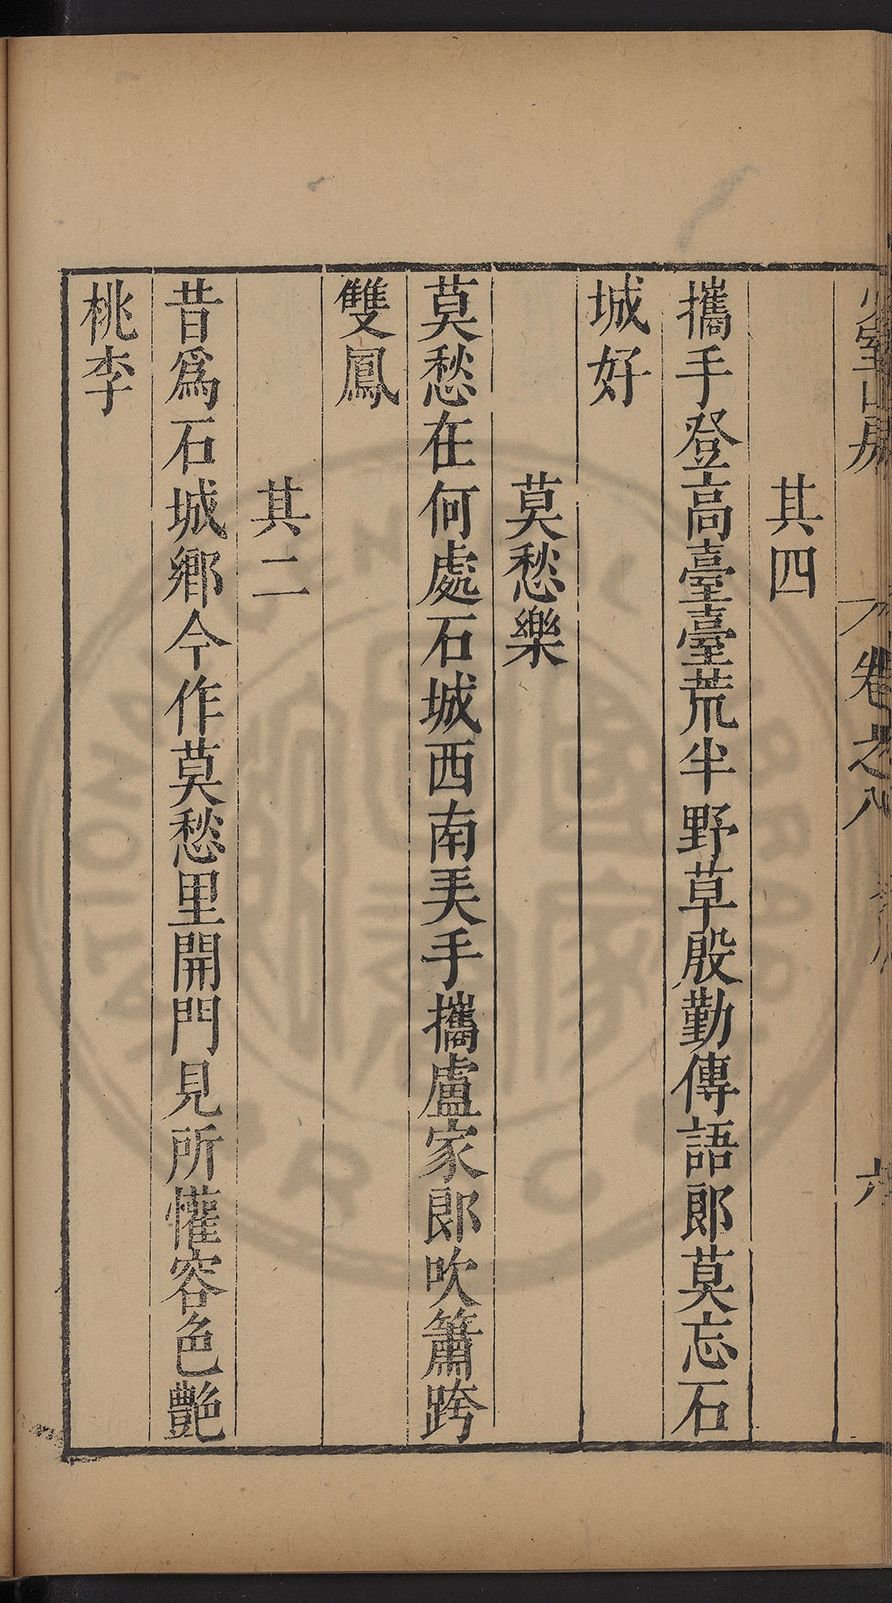 其四
攜手登高臺臺荒半野草殷勤傳語郎莫忘石
城好
莫愁樂
莫愁在何處石城西南美手攜盧家郎吹簫跨
雙鳳
其二
昔爲石城鄉今作莫愁里開門見所懽容色艶
桃李
卷之八